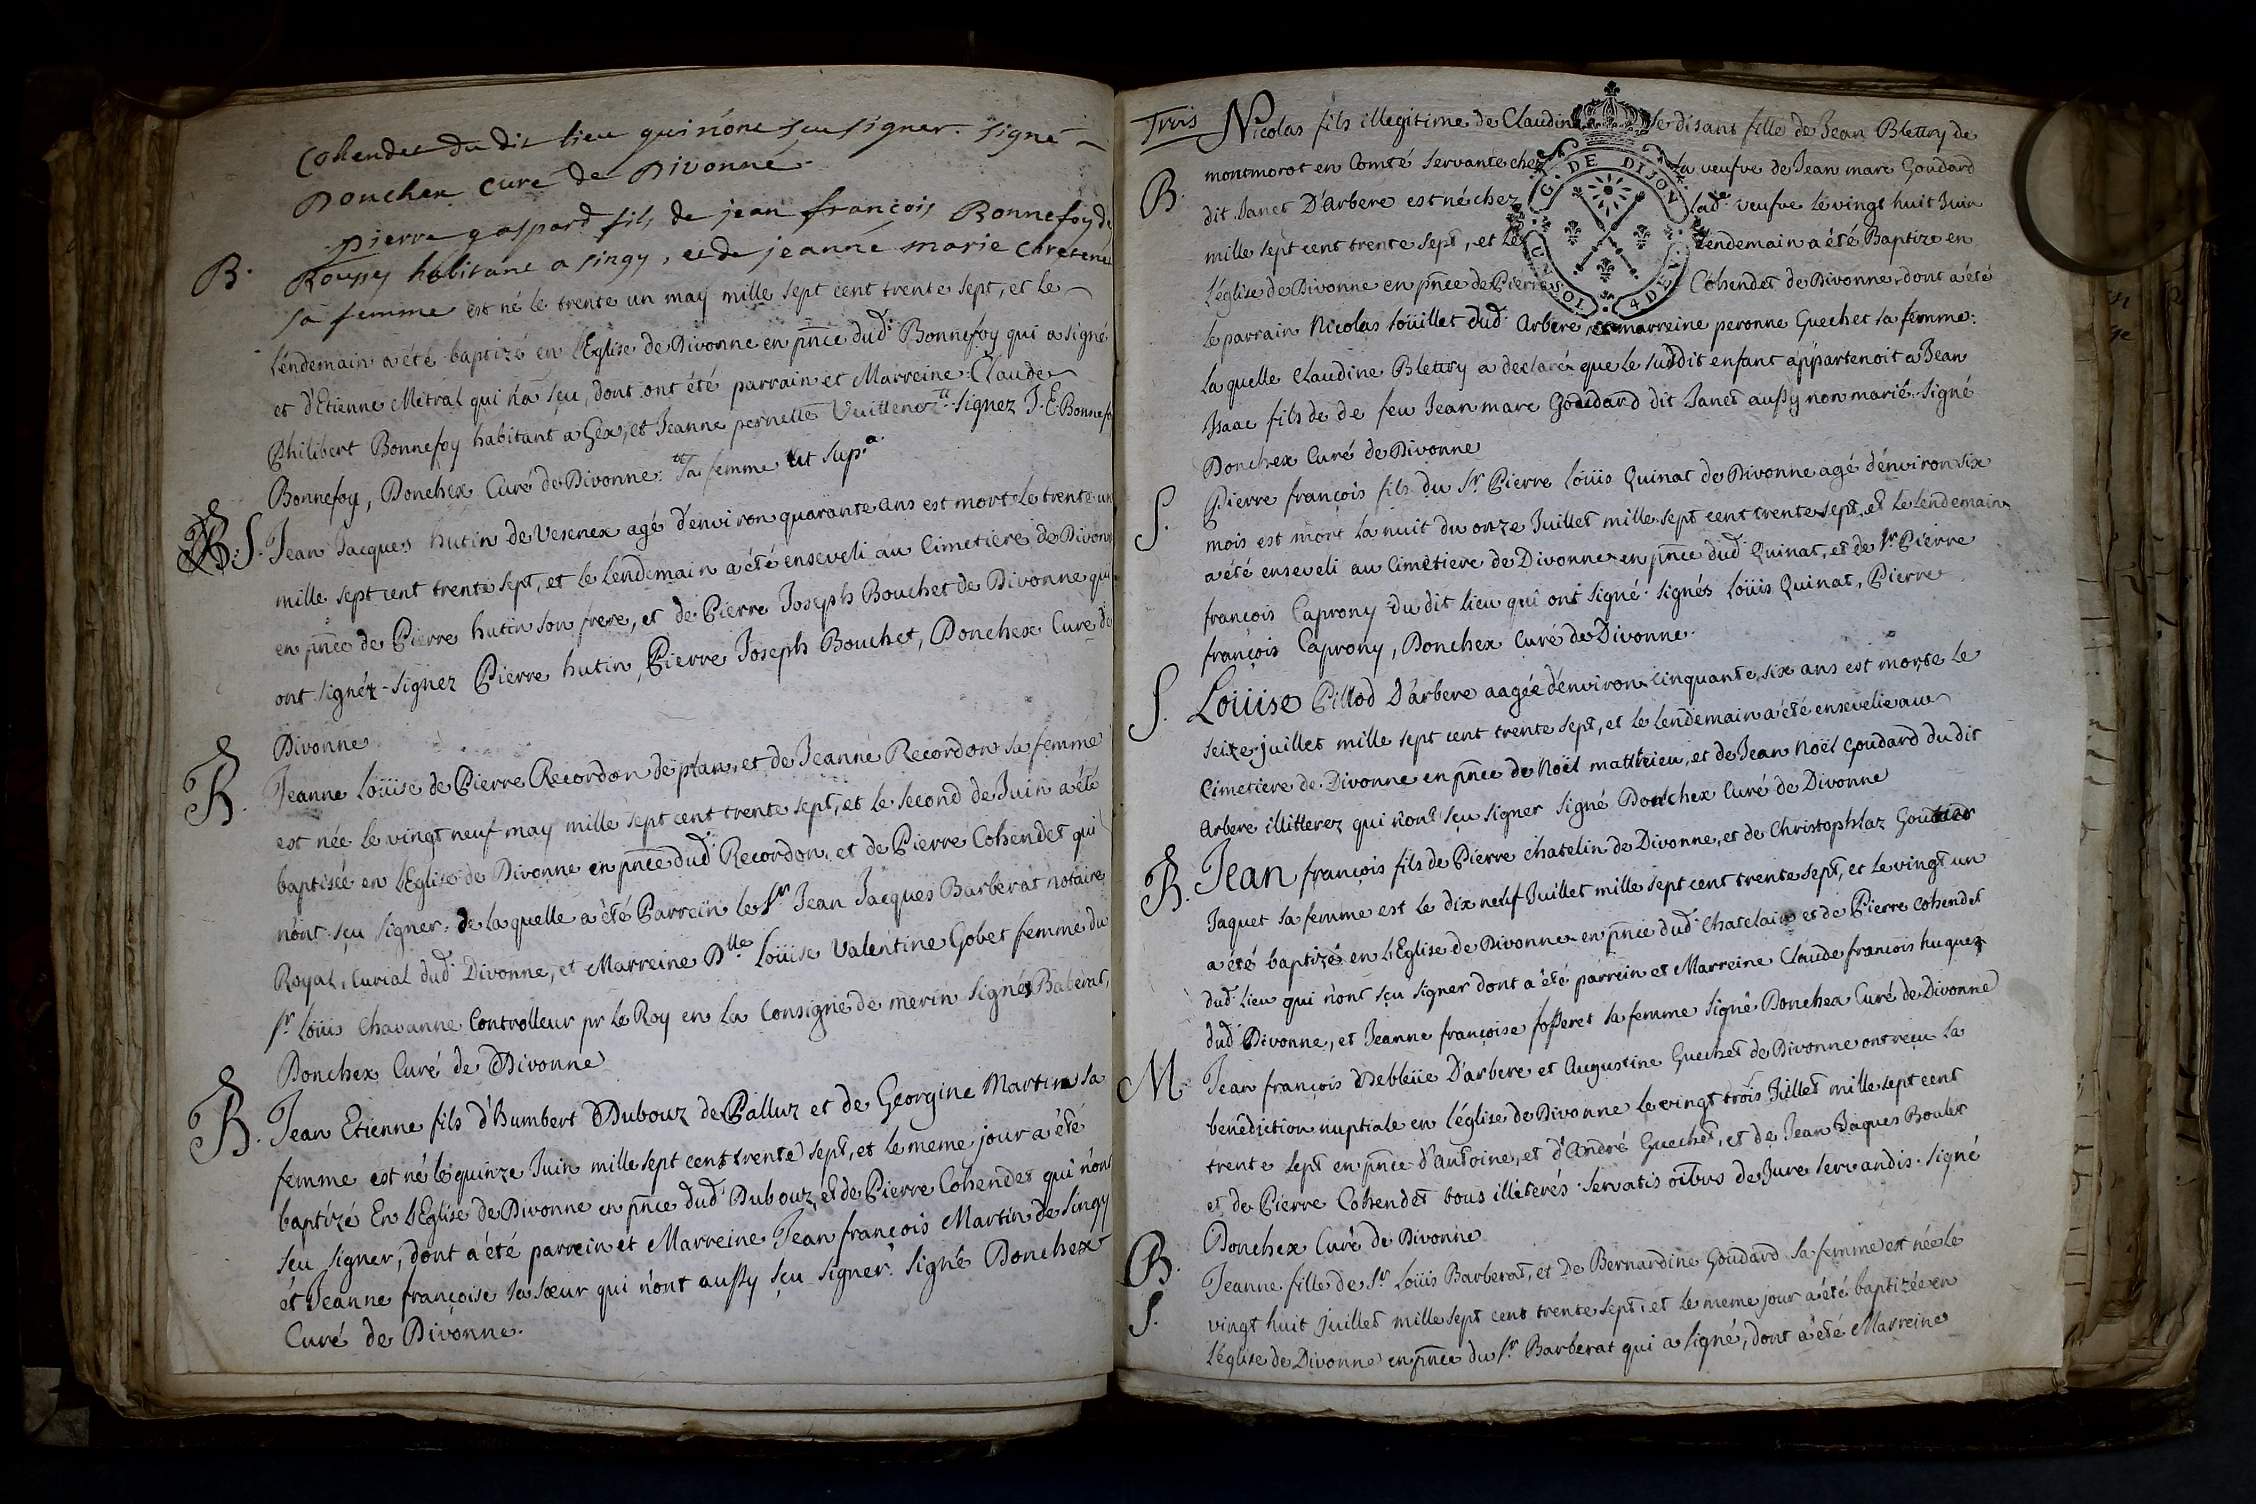 Cohendet du dit lieu qui n'ont scu signer. signé
Donchex Curé de Divonne.
B. Pierre gaspard fils de jean françois Bonnefoy de
Roussy habitant a singy, et de jeanne marie Chretenet
sa femme est né le trente un may mille sept cent trente sept, et le
lendemain a été baptizé en l'Eglise de Divonne en pñce dud. Bonnefoy qui a signé
et d'Etienne Metral qui n'a sçu, dont ont été parrain et Marreine Claude
Philibert Bonnefoy habitant a Gex, et Jeanne pernette Vuillenot signez J. E. Bonnefoy
Bonnefoy, Donchex Curé de Divonne. sa femme ut sup.a
B. S. Jean Jacques hutin de Vesenex agé d'environ quarante ans est mort le trente un
mille sept cent trente sept, et le lendemain a été enseveli au Cimetiere de Divonne
en pñce de Pierre hutin son frere, et de Pierre Joseph Bouchet de Divonne qui
ont signéz. signez Pierre hutin, Pierre Joseph Bouchet, Donchex Curé de
Divonne
B. Jeanne Loüise de Pierre Recordon de plan, et de Jeanne Recordon sa femme
est née le vingt neuf may mille sept cent trente sept, et le second de Juin a été
baptisée en l'Eglise de Divonne en pñce dud. Recordon, et de Pierre Cohendet qui
n'ont sçu signer. de laquelle a été Parrein le Sr. Jean Jacques Barberat notaire
Royal, Curial dud. Divonne, et Marreine Dlle Loüise Valentine Gobet femme du
Sr. Loüis Chavanne Controlleur pr le Roy en la Consigne de merin signés Baberat,
Donchex Curé de Divonne
B. Jean Etienne fils d'Humbert Dubouz de Palluz et de Georgine Martin sa
femme est né le quinze Juin mille sept cent trente sept, et le meme jour a été
baptizé En l'Eglise de Divonne en pñce dud. Dubouz et de Pierre Cohendet qui n'ont
sçu signer, dont a été parrein et Marreine Jean françois Martin de singy
et Jeanne françoise sa sœur qui n'ont aussy sçu signer. signé Donchex
Curé de Divonne.
Trois Nicolas fils illegitime de Claudine se disant fille de Jean Blettry de
montmorot en Comté servante chez la veufve de Jean marc Goudard
B. dit Janet D'Arbere est né chez lade. veufve le vingt huit Juin
mille sept cent trente sept, et le lendemain a été Baptize en
l'église de Divonne en pñce de Pierre Cohendet de Divonne, dont a été
le parrain Nicolas soüillet dud. Arbere, et marreine peronne Guechet sa femme:
la quelle Claudine Blettry a declaré que le susdit enfant appartenoit a Jean
Isaac fils de de feu Jean marc Goudard dit Janet aussy non marié. signé
Donchex Curé de Divonne
S. Pierre françois fils du Sr. Pierre Loüis Quinat de Divonne agé d'environ six
mois est mort la nuit du onze Juillet mille sept cent trente sept, et le lendemain
a été enseveli au Cimêtiere de Divonne en pñce dud. Quinat, et de Sr. Pierre
françois Caprony du dit lieu qui ont signé. signés Loüis Quinat, Pierre
françois Caprony, Donchex Curé de Divonne.
S. Loüise Pillod D'arbere aagée d'environ cinquante, six ans est morte le
seize juillet mille sept cent trente sept, et le lendemain a été ensevelie au
Cimetiere de Divonne en pñce de Noël matthieu, et de Jean Noël Goudard du dit
Arbere illitterez qui n'ont sçu signer signé Donchex Curé de Divonne
B. Jean françois fils de Pierre chatelin de Divonne, et de Christophlaz
Jaquet sa femme est le dix neuf Juillet mille sept cent trente sept, et le vingt un
a été baptizé en l'Eglise de Divonne en pñce dud. Chatelain et de Pierre Cohendet
dud. lieu qui n'ont sçu signer dont a été parrein et Marreine Claude françois huquez
dud. Divonne, et Jeanne françoise fosseret sa femme signé Donchex Curé de Divonne
M. Jean françois Debleüe D'arbere et Augustine Guechet de Divonne ont reçu la
benediction nuptiale en l'église de Divonne le vingt trois Juillet mille sept cent
trente sept en pñce d'antoine, et d'André Guechet, et de Jean Jaques Boulet
et de Pierre Cohendet tous illiterés. servatis oibus de Jure servandis. signé
Donchex Curé de Divonne
B. Jeanne fille de Sr. Loüis Barberat, et De Bernardine Goudard sa femme est née le
S. vingt huit juillet mille sept cent trente sept, et le meme jour a été baptizée en
l'église de Divonne en pñce du Sr. Barberat qui a signé, dont a été Marreine
G. DE DIJON